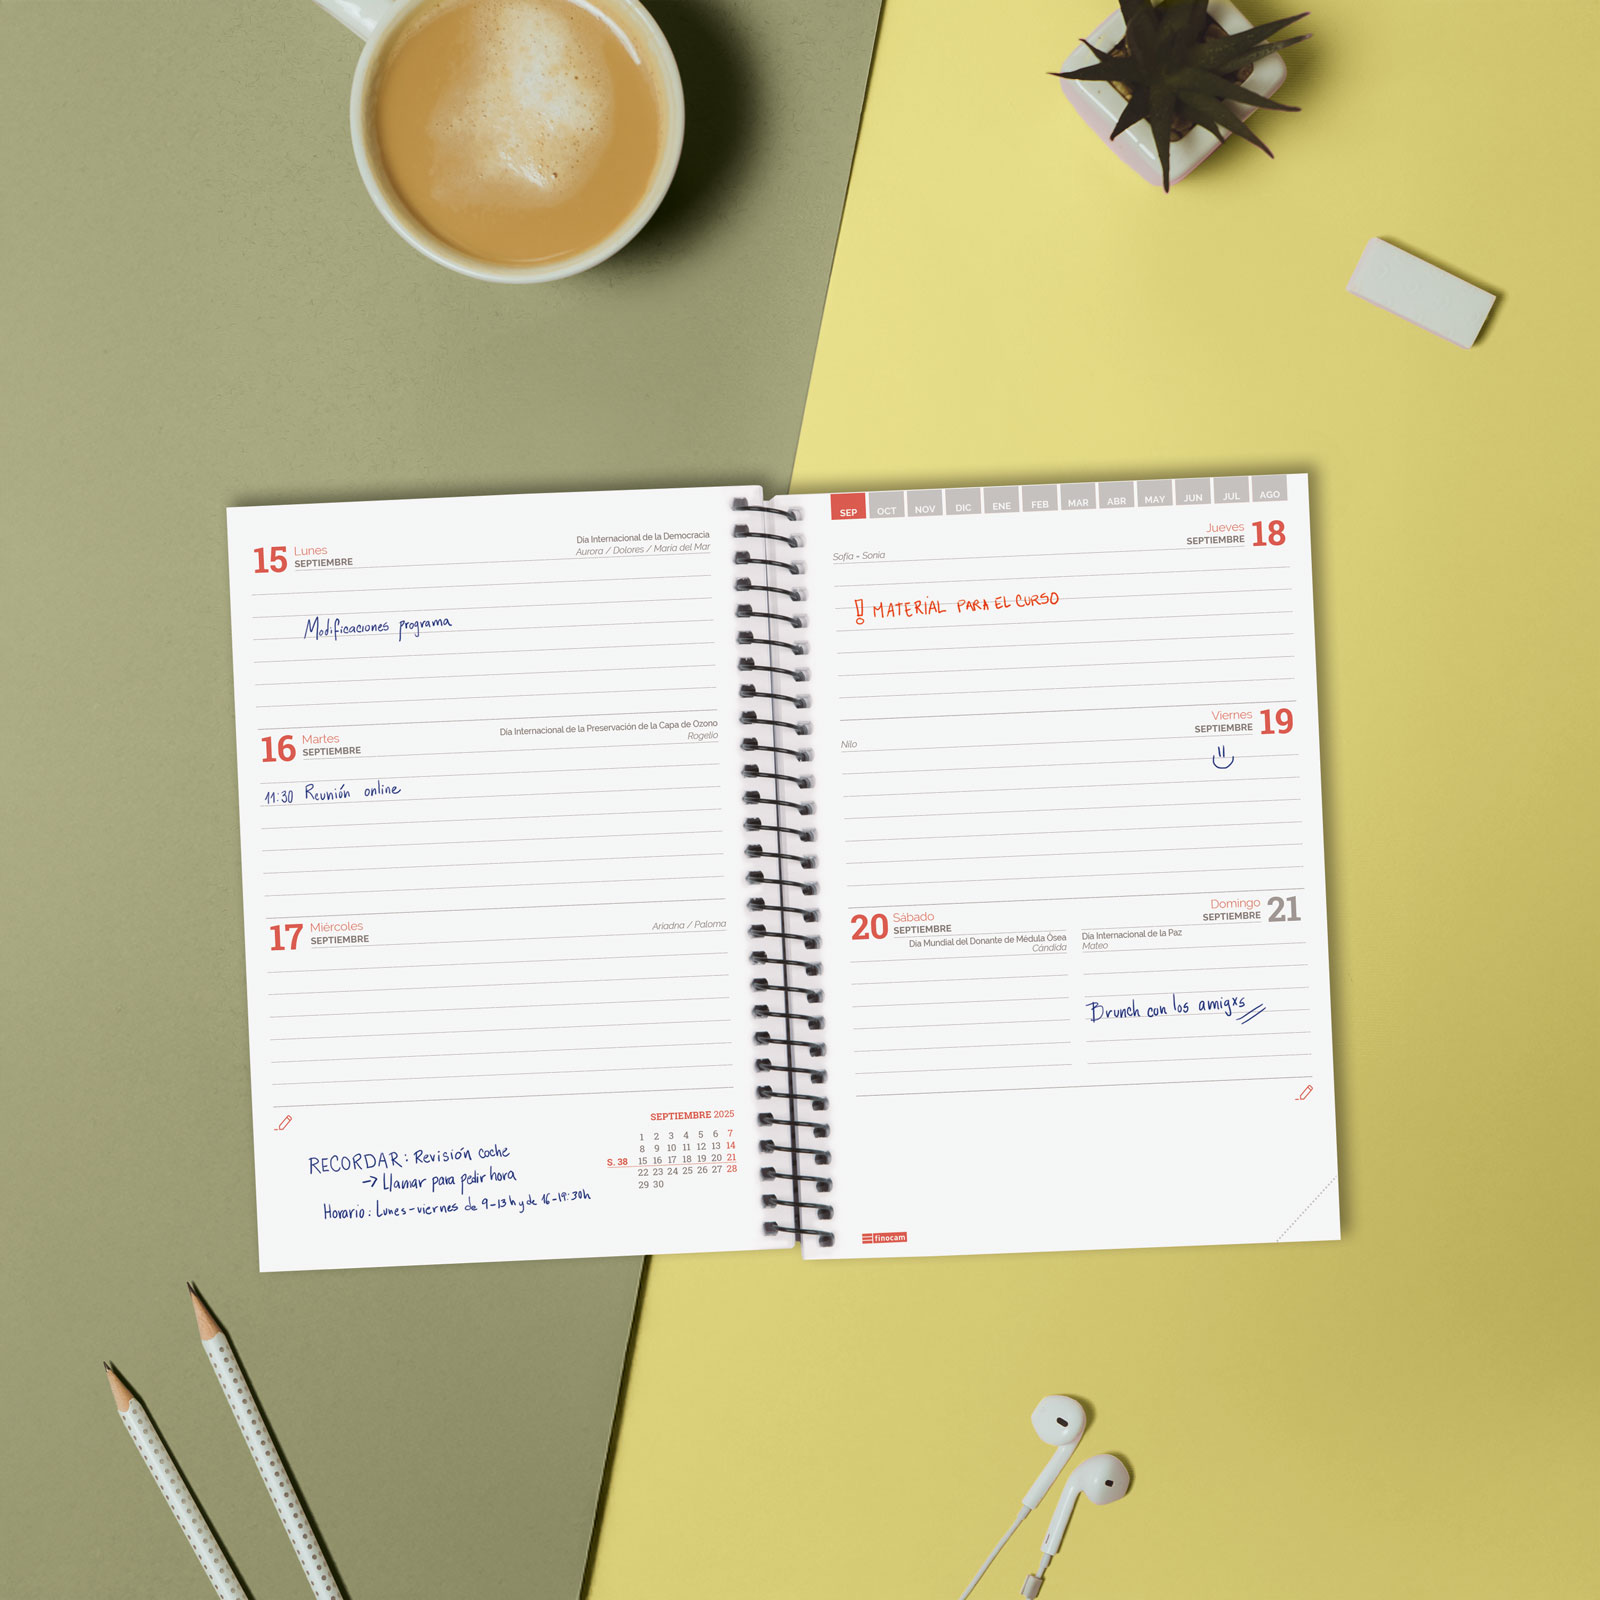 15 Lunes
SEPTIEMBRE
Dia Internacional de la Democracia
Aurora / Dolores / María del Mar
Modificaciones programa
16 Martes
SEPTIEMBRE
Dia Internacional de la Preservación de la Capa de Ozono
Rogelio
11:30 Reunión online
17 Miércoles
SEPTIEMBRE
Ariadna / Paloma
RECORDAR: Revisión coche
→ Llamar para pedir hora
Horario: Lunes-viernes de 9-13h y de 16-19:30h
SEPTIEMBRE 2025
1 2 3 4 5 6 7
8 9 10 11 12 13 14
S. 38 15 16 17 18 19 20 21
22 23 24 25 26 27 28
29 30
SEP OCT NOV DIC ENE FEB MAR ABR MAY JUN JUL AGO
Jueves 18
SEPTIEMBRE
Sofía - Sonia
! MATERIAL PARA EL CURSO
Viernes 19
SEPTIEMBRE
Nilo
20 Sábado
SEPTIEMBRE
Dia Mundial del Donante de Médula Ósea
Cándida
Domingo 21
SEPTIEMBRE
Dia Internacional de la Paz
Mateo
Brunch con los amigxs
finocam